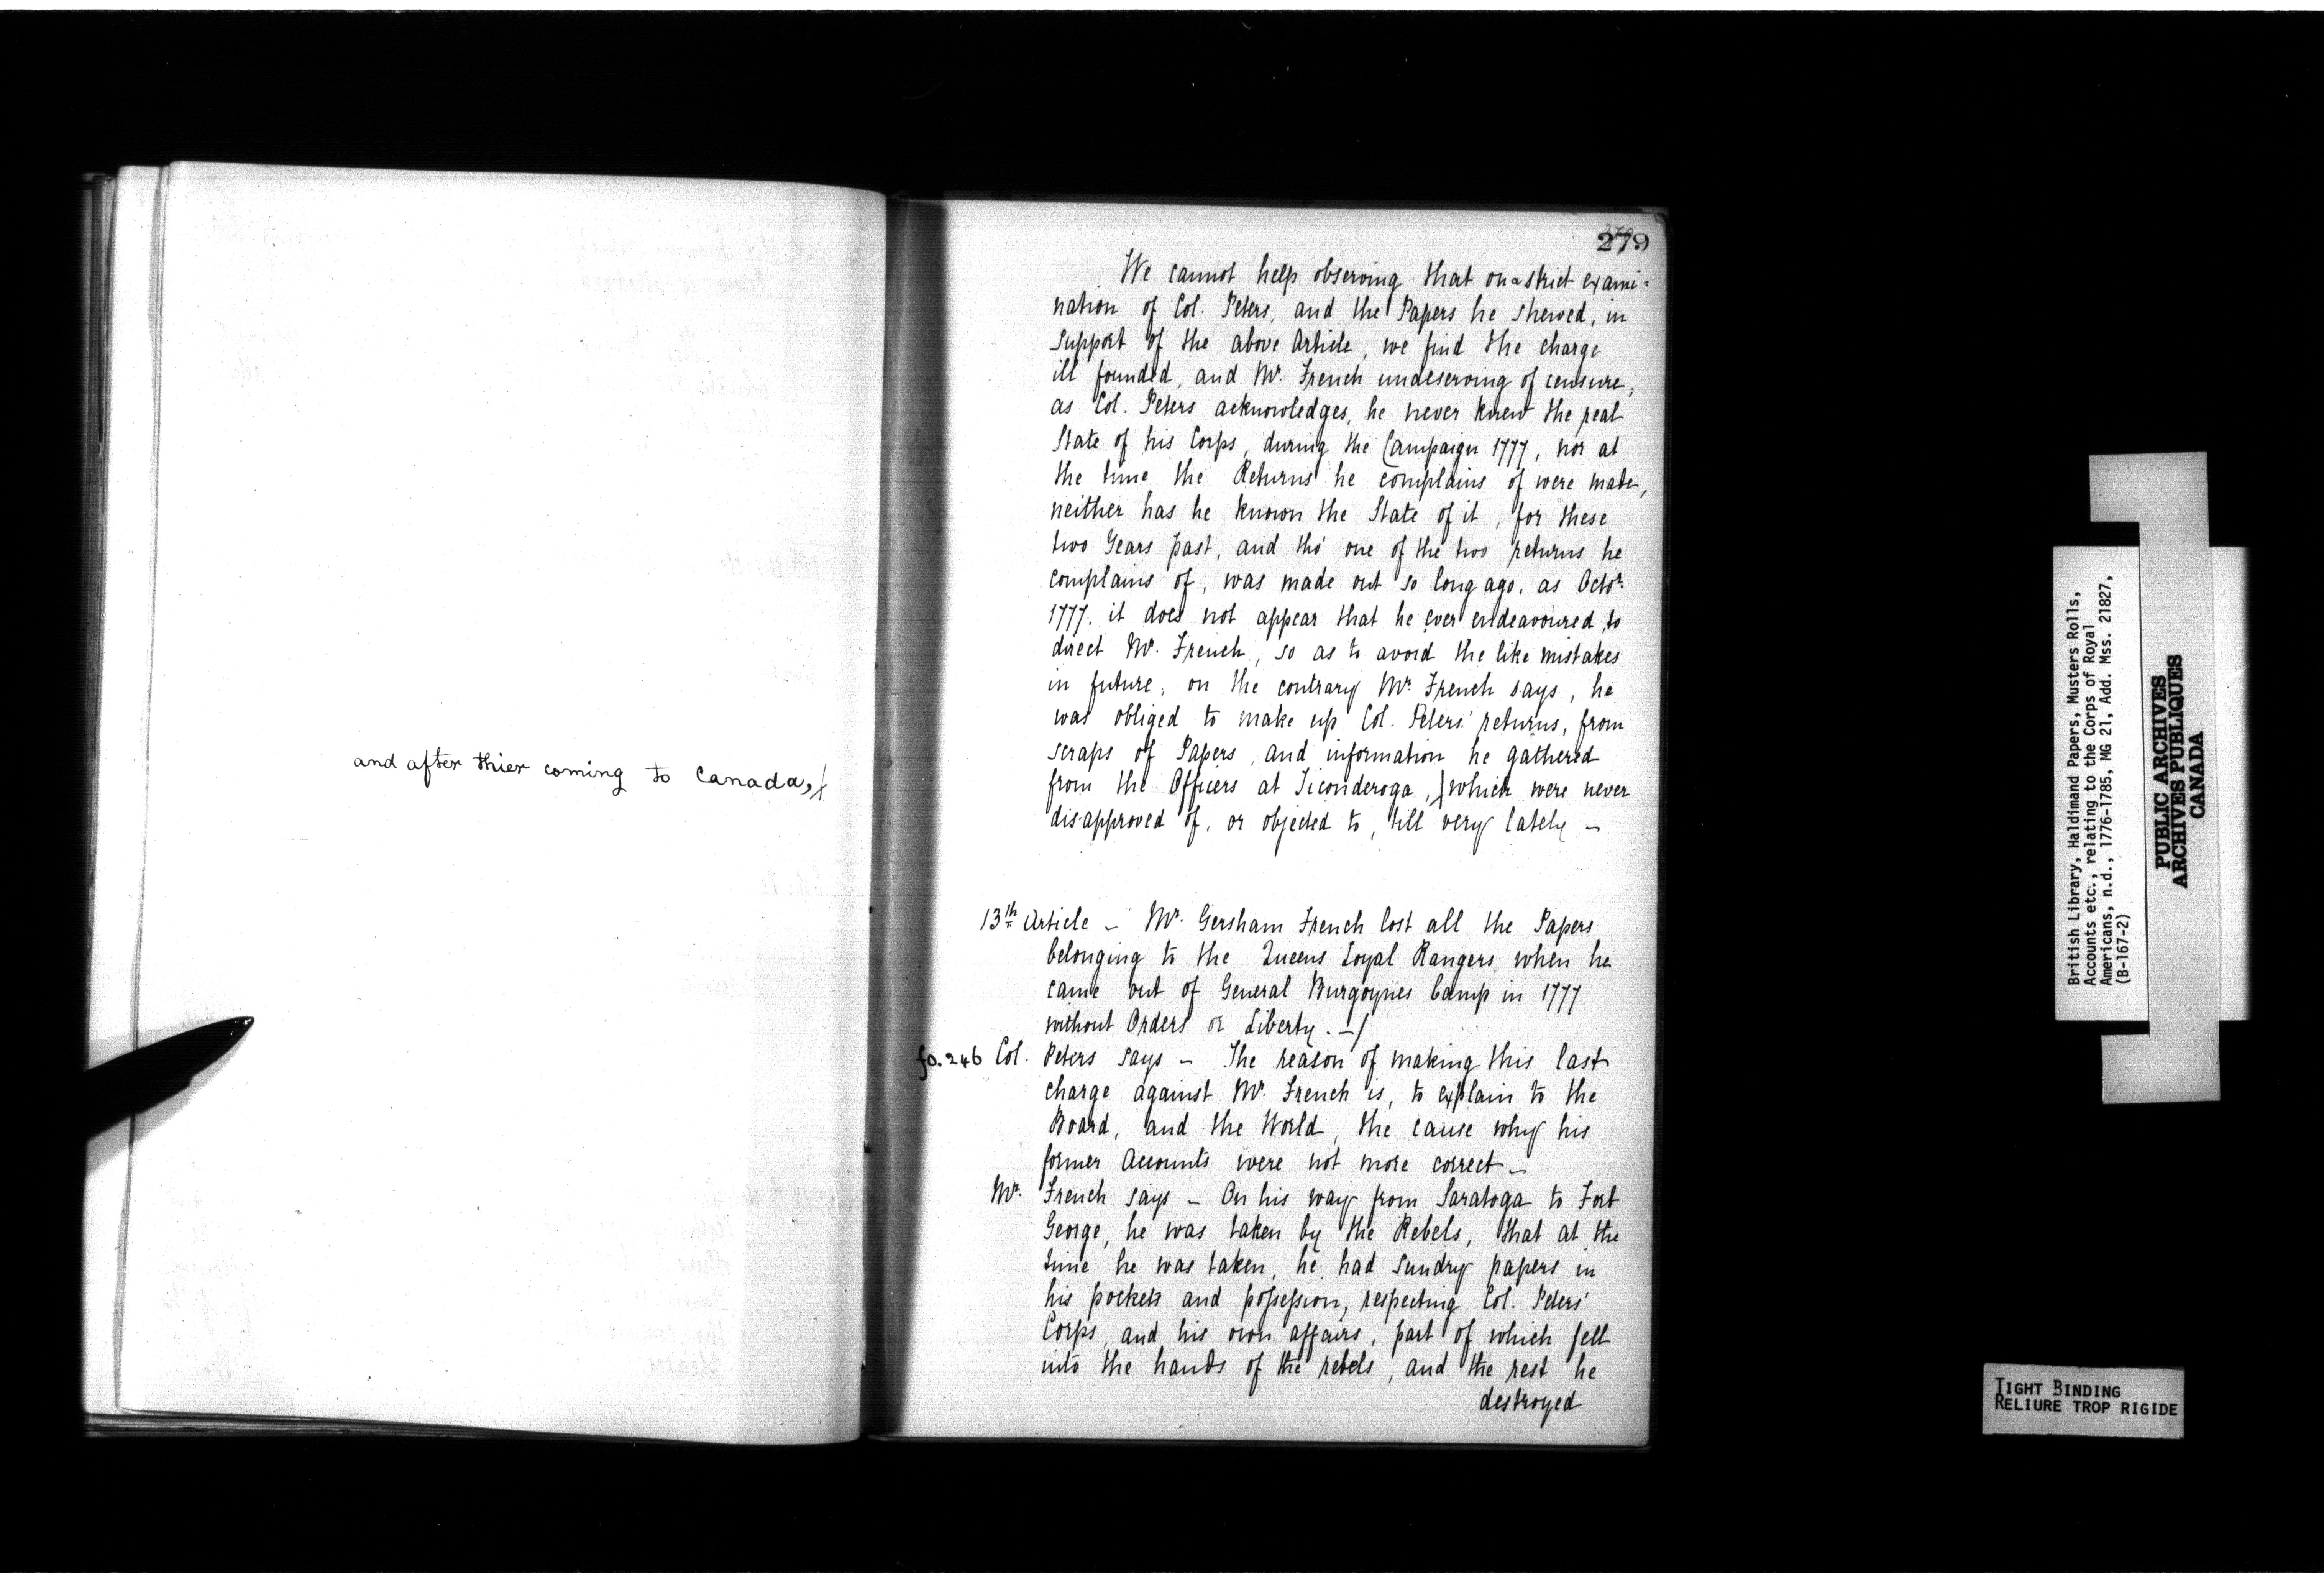 and after thier coming to Canada,
279
We cannot help observing that on a strict exami=
nation of Col. Peters, and the Papers he shewed, in
support of the above Article, we find the charge
ill founded, and Mr. French undeserving of censure,
as Col. Peters acknowledges, he never knew the real
State of his Corps, during the Campaign 1777, nor at
the time the Returns he complains of were made,
neither has he known the State of it, for these
two Years past, and tho' one of the two returns he
complains of, was made out so long ago, as Octor.
1777. it does not appear that he ever endeavoured to
direct Mr. French, so as to avoid the like mistakes
in future, on the contrary Mr. French says, he
was obliged to make up Col. Peters' returns, from
scraps of Papers, and information he gathered
from the Officers at Ticonderoga, which were never
disapproved of, or objected to, till very lately –
13th Article – Mr. Gersham French lost all the Papers
belonging to the Queens Loyal Rangers when he
came out of General Burgoynes Camp in 1777
without Orders or Liberty. –/
fo. 246 Col. Peters says – The reason of making this last
charge against Mr. French is, to explain to the
Board, and the World, the cause why his
former Accounts were not more correct –
Mr. French says – On his way from Saratoga to Fort
George, he was taken by the Rebels, that at the
time he was taken, he had sundry papers in
his pockets and possession, respecting Col. Peters'
Corps, and his own affairs, part of which fell
into the hands of the rebels, and the rest he
destroyed
British Library, Haldimand Papers, Musters Rolls,
Accounts etc., relating to the Corps of Royal
Americans, n.d., 1776-1785, MG 21, Add. Mss. 21827,
(B-167-2)
PUBLIC ARCHIVES
ARCHIVES PUBLIQUES
CANADA
TIGHT BINDING
RELIURE TROP RIGIDE